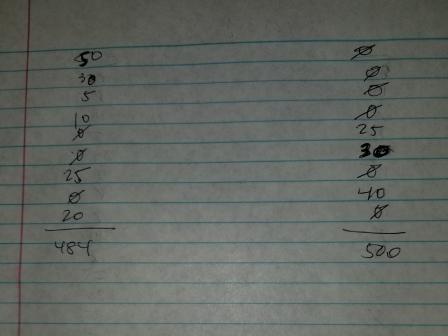 50
30
5
10
0
0
25
0
20
484
0
0
0
0
25
30
0
40
0
500